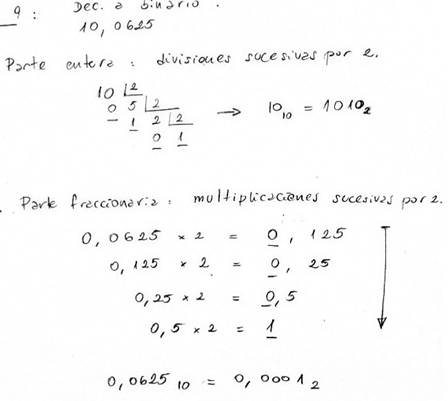 9 : Dec. a binario.
10,0625
Parte entera : divisiones sucesivas por 2.
10 2
0 5 2 → 10₁₀ = 1010₂
1 2 2
0 1
Parte fraccionaria : multiplicaciones sucesivas por 2.
0,0625 × 2 = 0,125
0,125 × 2 = 0,25
0,25 × 2 = 0,5
0,5 × 2 = 1
0,0625₁₀ = 0,0001₂